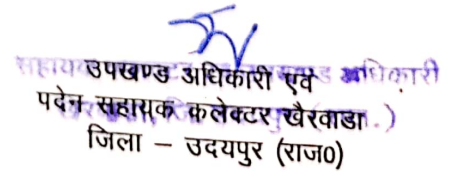 उपखण्ड अधिकारी एवं
पदेन सहायक कलेक्टर खैरवाडा
जिला – उदयपुर (राज0)